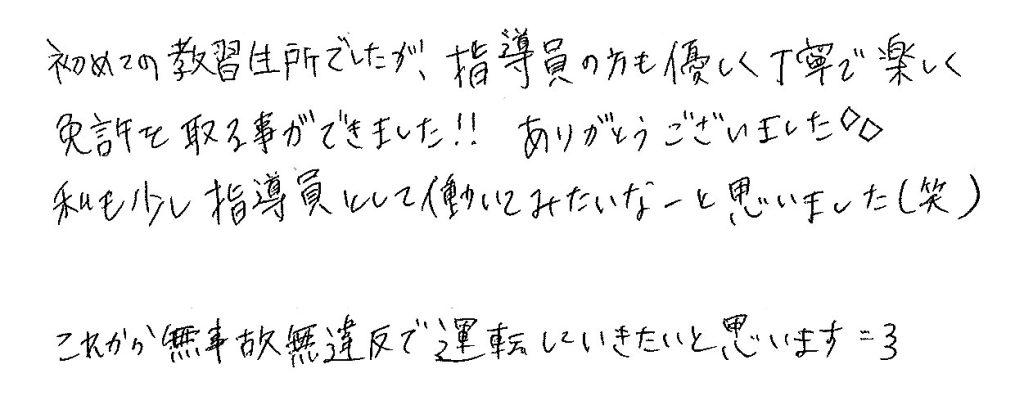 初めての教習住所でしたが、指導員の方も優しく丁寧で楽しく
免許を取る事ができました!! ありがとうございました◇◇
私も少し指導員として働いてみたいなーと思いました(笑)
これから無事故無違反で運転していきたいと思います=3